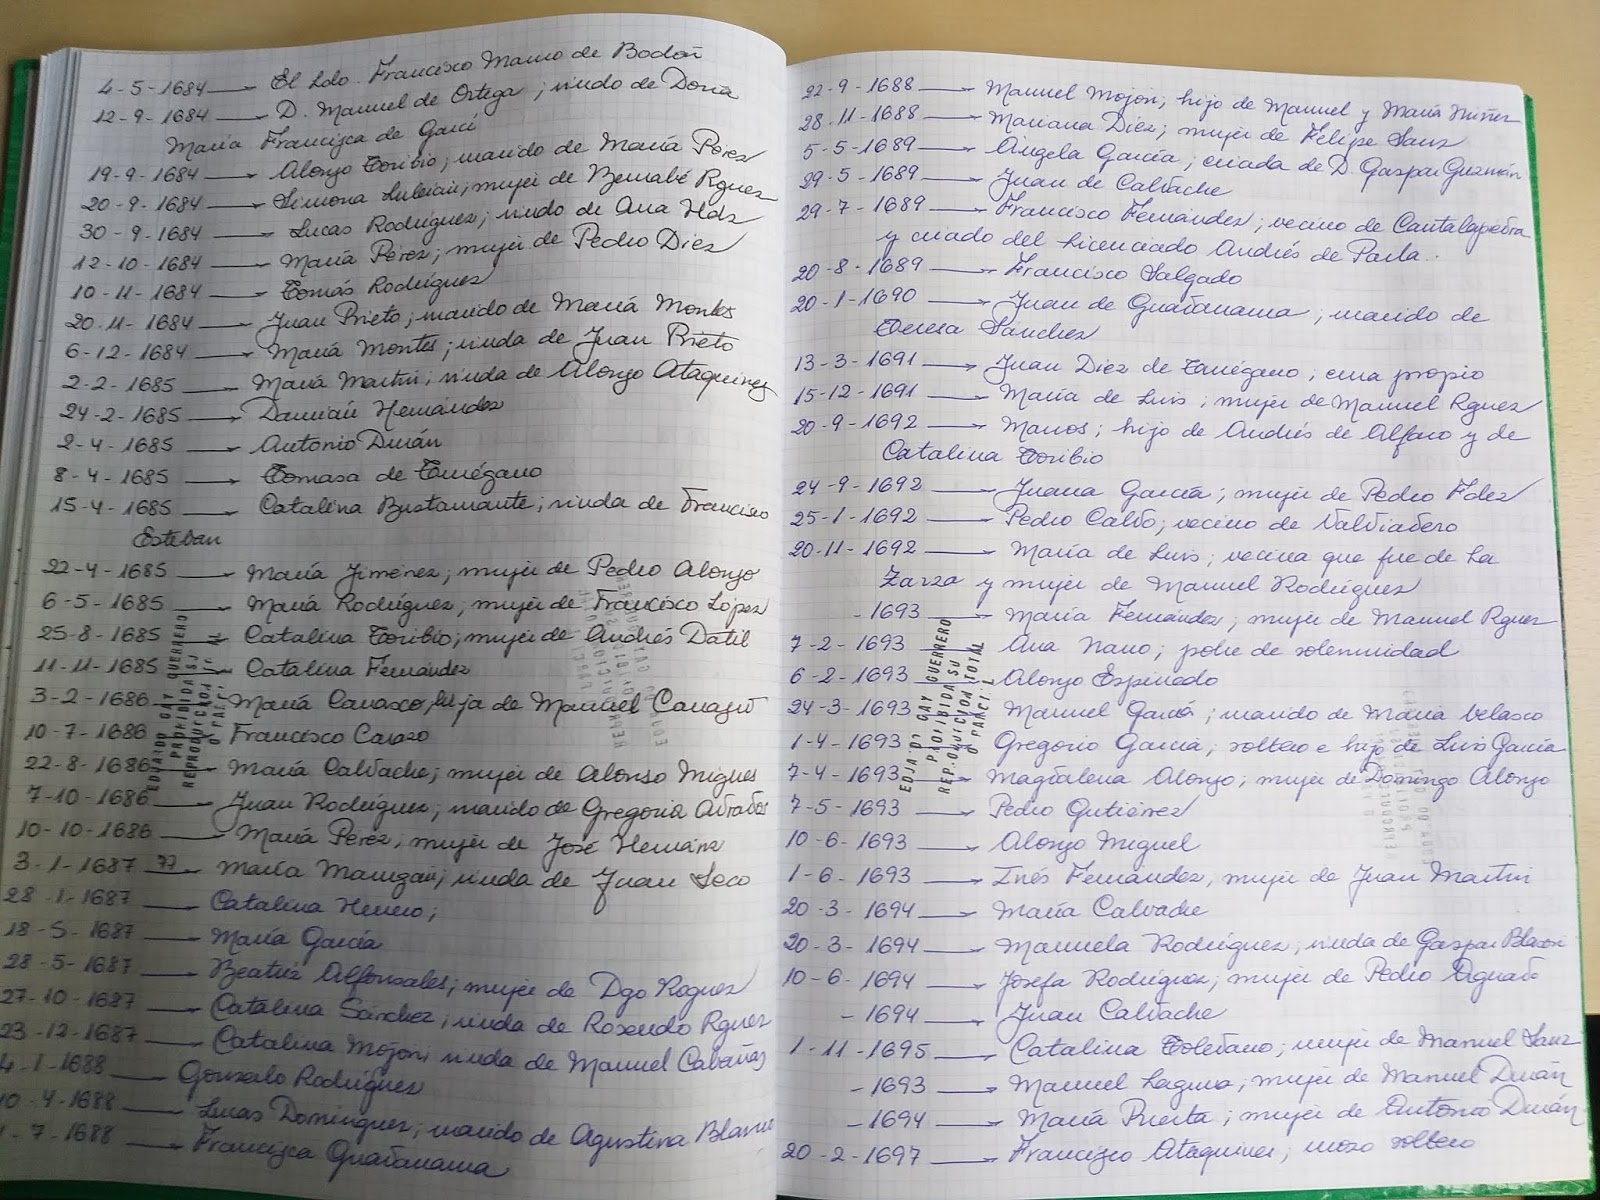 4-5-1684 — El Ldo. Francisco Marro de Bodón
12-9-1684 — D. Manuel de Ortega; viudo de Doña
María Francisca de Garci
19-9-1684 — Alonso Toribio; marido de María Pérez
20-9-1684 — Simona Lubián; mujer de Bernabé Rguez
30-9-1684 — Lucas Rodríguez; viudo de Ana Hdz
12-10-1684 — María Pérez; mujer de Pedro Díez
10-11-1684 — Tomás Rodríguez
20-11-1684 — Juan Prieto; marido de María Montes
6-12-1684 — María Montes; viuda de Juan Prieto
2-2-1685 — María Martín; viuda de Alonso Ataquines
24-2-1685 — Damián Hernández
2-4-1685 — Antonio Durán
8-4-1685 — Tomasa de Turégano
15-4-1685 — Catalina Bustamante; viuda de Francisco
Esteban
22-4-1685 — María Jiménez; mujer de Pedro Alonso
6-5-1685 — María Rodríguez; mujer de Francisco López
25-8-1685 — Catalina Toribio; mujer de Andrés Datil
11-11-1685 — Catalina Fernández
3-2-1686 — María Carrasco, hija de Manuel
10-7-1686 — Francisco Carazo
22-8-1686 — María Calvache; mujer de Alonso Migues
7-10-1686 — Juan Rodríguez; marido de Gregoria Adrados
10-10-1686 — María Pérez; mujer de José Hernánz
3-1-1687 — María Manzgan; viuda de Juan Seco
28-1-1687 — Catalina Herrero;
18-5-1687 — María García
28-5-1687 — Beatriz Alfonsales; mujer de Dgo Roguez
27-10-1687 — Catalina Sánchez; viuda de Rosendo Rguez
23-12-1687 — Catalina Mojón; viuda de Manuel Cabañas
4-1-1688 — Gonzalo Rodríguez
10-4-1688 — Lucas Domínguez; marido de Agustina Blanco
1-7-1688 — Francisca Guadarrama
22-9-1688 — Manuel Mojón; hijo de Manuel y María Núñez
28-11-1688 — Mariana Díez; mujer de Felipe Sanz
5-5-1689 — Ángela García; criada de D. Gaspar Guzmán
29-5-1689 — Juan de Calvache
29-7-1689 — Francisco Fernández; vecino de Cantalapiedra
y criado del Licenciado Andrés de Parla.
20-8-1689 — Francisco Salgado
20-1-1690 — Juan de Guadarrama; marido de
Teresa Sánchez
13-3-1691 — Juan Díez de Turégano; cura propio
15-12-1691 — María de Luis; mujer de Manuel Rguez
20-9-1692 — Marcos; hijo de Andrés de Alfaro y de
Catalina Toribio
24-9-1692 — Juana García; mujer de Pedro Fdez
25-1-1692 — Pedro Calvo; vecino de Valviadero
20-11-1692 — María de Luis; vecina que fue de La
Zarza y mujer de Manuel Rodríguez
-1693 — María Fernández; mujer de Manuel Rguez
7-2-1693 — Ana Nano; pobre de solemnidad
6-2-1693 — Alonso Espinedo
24-3-1693 — Manuel García; marido de María Velasco
1-4-1693 — Gregorio García; soltero e hijo de Luis García
7-4-1693 — Magdalena Alonso; mujer de Domingo Alonso
7-5-1693 — Pedro Gutiérrez
10-6-1693 — Alonso Miguel
1-6-1693 — Inés Fernández, mujer de Juan Martín
20-3-1694 — María Calvache
20-3-1694 — Manuela Rodríguez; viuda de Gaspar Blasón
10-6-1694 — Josefa Rodríguez; mujer de Pedro Aguado
-1694 — Juan Calvache
1-11-1695 — Catalina Toledano; mujer de Manuel Sanz
-1693 — Manuel Laguna; mujer de Manuel Durán
-1694 — María Puerta; mujer de Antonio Durán
20-2-1697 — Francisco Ataquines; mozo soltero
GAY GUERRERO
PROIBIDA SU
REPRODUCCION TOTAL
O PARCIAL